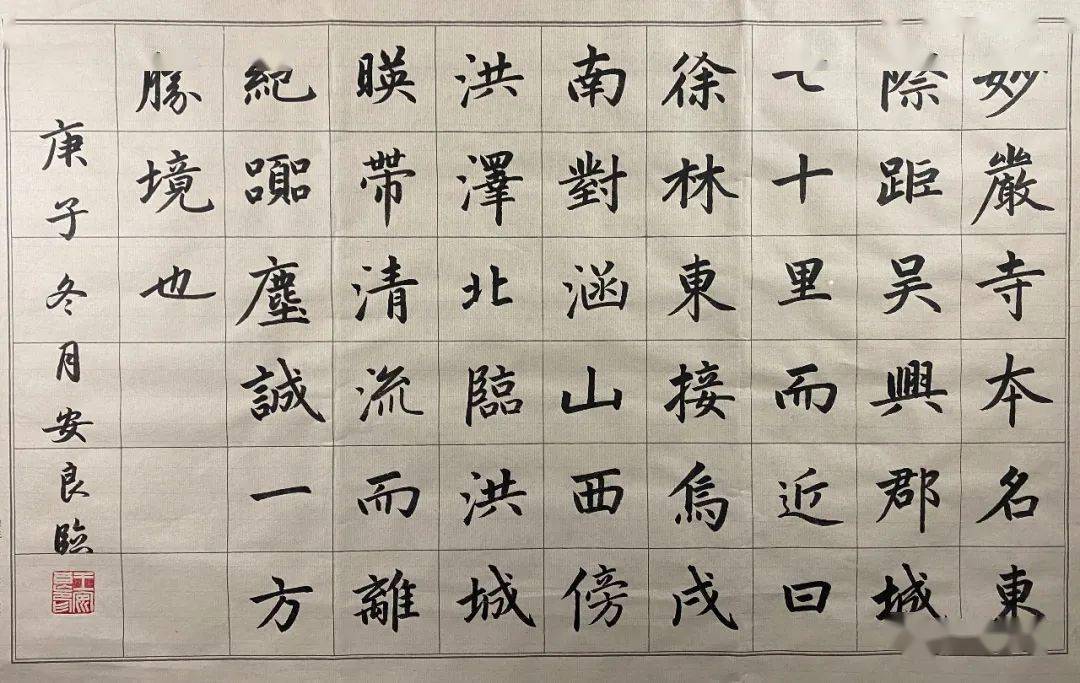 妙嚴寺本名東
際距吴興郡城
七十里而近曰
徐林東接烏戍
南對涵山西傍
洪澤北臨洪城
暎帶清流而離
絶囂塵誠一方
勝境也
庚子冬月安良臨